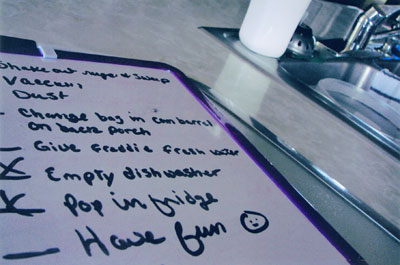 Shake out rugs & sweep
Vacuum
Dust
- Change bag in can barrel
on back porch
- Give Freddie Fresh water
X Empty dishwasher
X Pop in fridge
- Have fun ☺